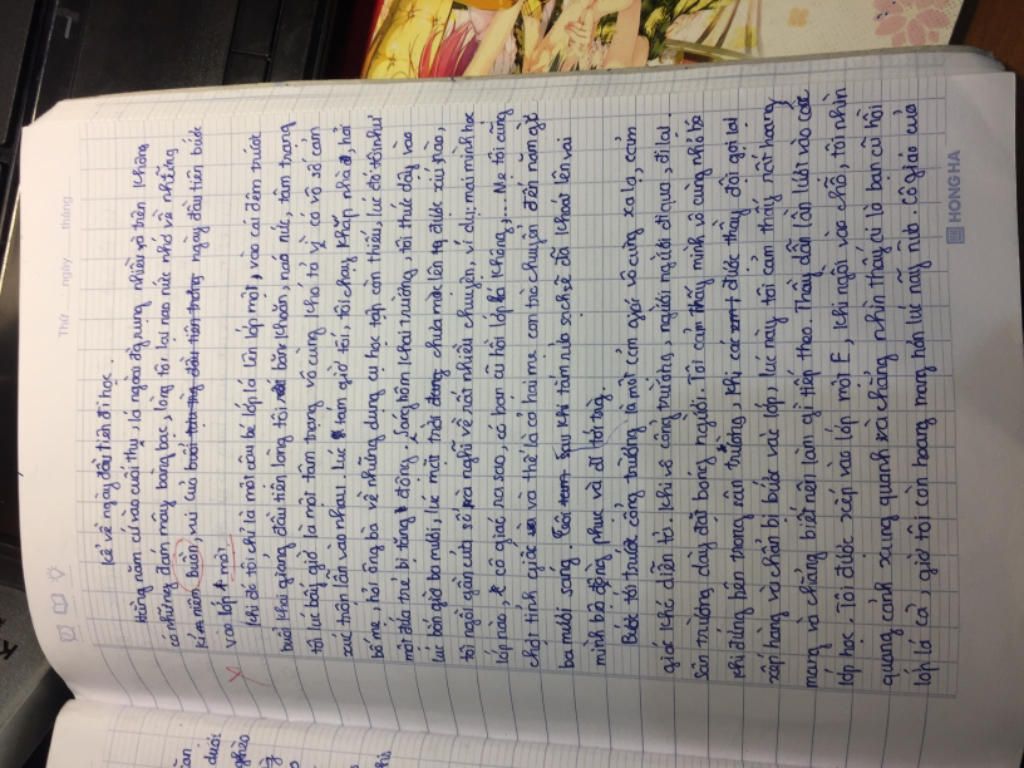 Thứ ngày tháng
Kể về ngày đầu tiên đi học.
Hằng năm cứ vào cuối thu, lá ngoài đường rụng nhiều và trên không
có những đám mây bàng bạc, lòng tôi lại nao nức nhớ về những
kỉ niệm buồn, vui của buổi tựu trường đầu tiên trong ngày đầu tiên bước
vào lớp 1 một
Khi đó tôi chỉ là một cậu bé lớp lá lên lớp một, vào cái đêm trước
buổi khai giảng đầu tiên lòng tôi băn khoăn, náo nức, tâm trạng
tôi lúc bấy giờ là một tâm trạng vô cùng khó tả vì có vô số cảm
xúc trộn lẫn vào nhau. Lúc tám giờ tối, tôi chạy khắp nhà, hỏi
bố mẹ, hỏi ông bà về những dụng cụ học tập còn thiếu, lúc đó tôi như
một đứa trẻ bị tăng động. Sáng hôm khai trường, tôi thức dậy vào
lúc bốn giờ ba mươi, lúc mặt trời đang chưa mọc lên tẹ được xíu nào,
tôi ngồi gần cửa sổ mà nghĩ về rất nhiều chuyện, ví dụ: mai mình học
lớp nào, cô giáo ra sao, có bạn cũ hồi lớp lá không,.... Mẹ tôi cũng
chợt tỉnh giấc và thế là cả hai mẹ con trò chuyện đến năm giờ
ba mươi sáng. Sau khi tắm rửa sạch sẽ đã khoát lên vai
mình bộ đồng phục và đi tới trường.
Bước tới trước cổng trường là một cảm giác vô cùng xa lạ, cảm
giác khó diễn tả. Khi vô cổng trường, người người đi qua, đi lại.
Sân trường dày đặt bong người. Tôi cảm thấy mình vô cùng nhỏ bé
khi đứng bên trong sân trường, khi các được thầy đội gọi lại
xếp hàng và chuẩn bị bước vào lớp, lúc này tôi cảm thấy rất hoang
mang và chẳng biết nên làm gì tiếp theo. Thầy dần lần lượt vào các
lớp học. Tôi được xếp vào lớp một E, khi ngồi vào chỗ, tôi nhìn
quang cảnh xung quanh và chẳng nhìn thấy ai là bạn cũ hồi
lớp lá cả, giờ tôi còn hoang mang hơn lúc nãy nữa. Cô giáo của
HONG HA
dưới
nghèo